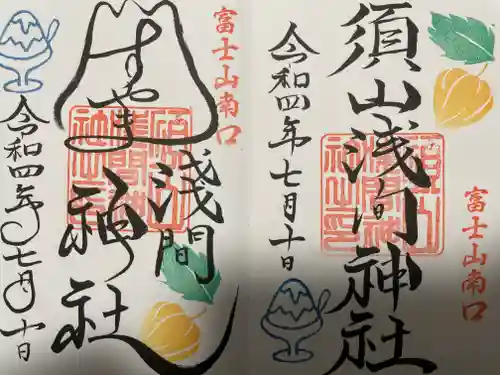 富士山南口
須山浅間神社
令和四年七月十日
富士山南口
すやま
浅間
神社
令和四年七月十日